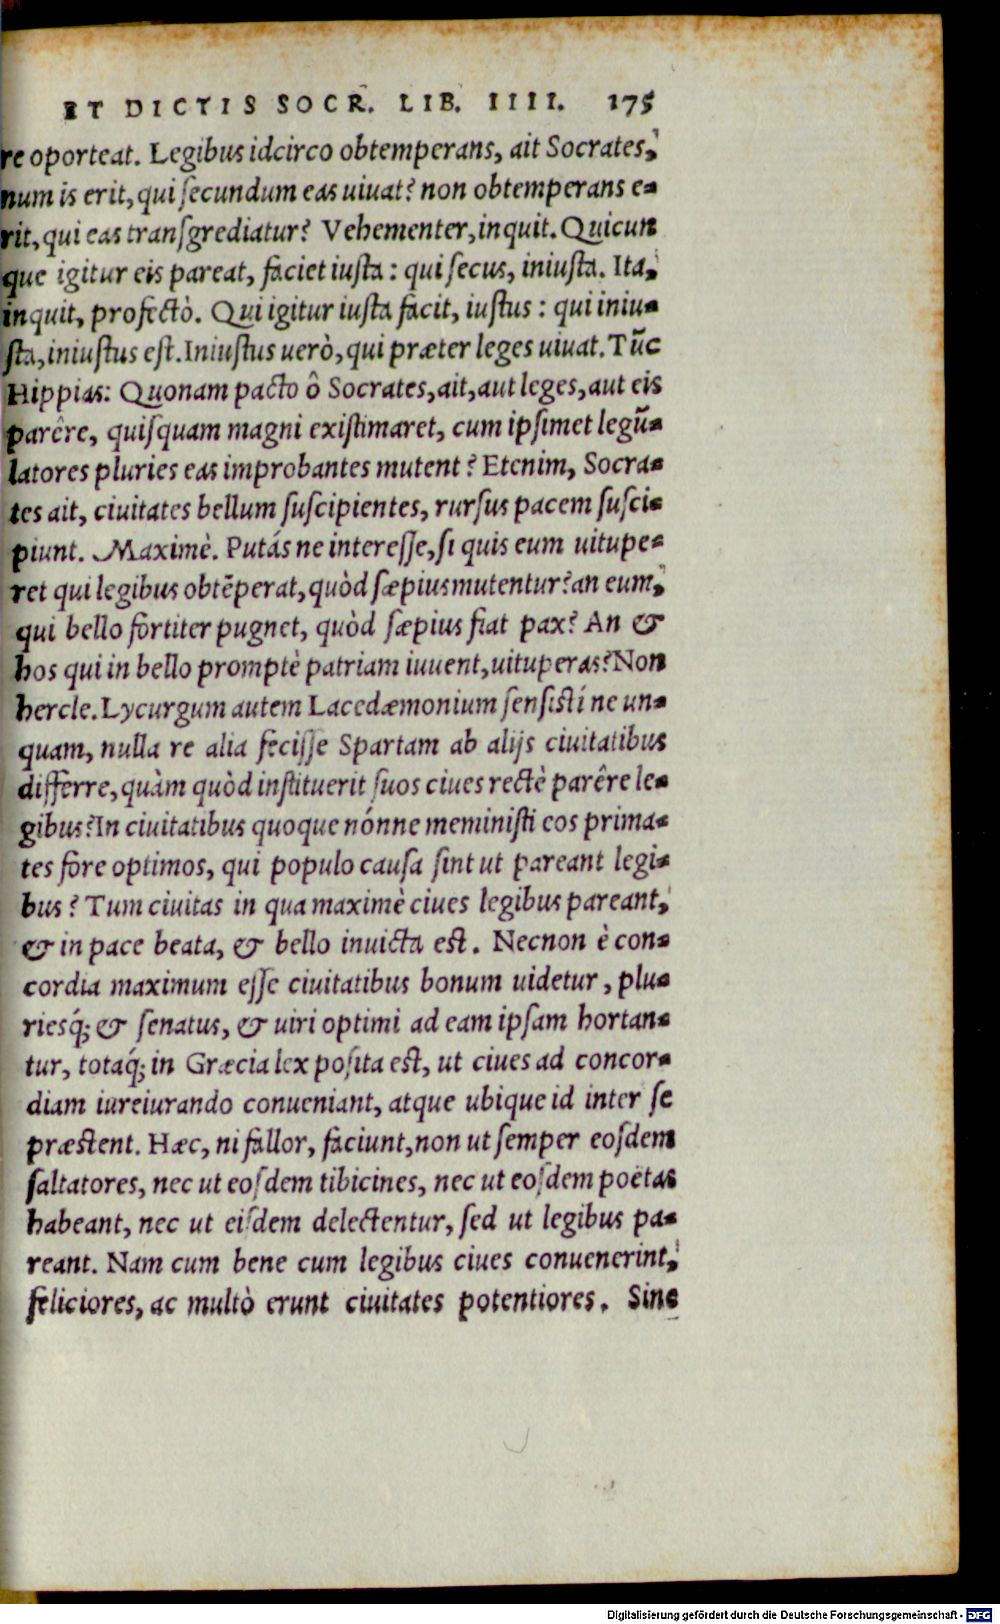 ET DICTIS SOCR. LIB. IIII. 175
re oporteat. Legibus idcirco obtemperans, ait Socrates,
num is erit, qui secundum eas uiuat? non obtemperans e-
rit, qui eas transgrediatur? Vehementer, inquit. Quicun
que igitur eis pareat, faciet iusta: qui secus, iniusta. Ita,
inquit, profectò. Qui igitur iusta facit, iustus: qui iniu-
sta, iniustus est. Iniustus uerò, qui præter leges uiuat. Tũc
Hippias: Quonam pacto ô Socrates, ait, aut leges, aut eis
parêre, quisquam magni existimaret, cum ipsimet legũ-
latores pluries eas improbantes mutent? Etenim, Socra-
tes ait, ciuitates bellum suscipientes, rursus pacem susci-
piunt. Maximè. Putás ne interesse, si quis eum uitupe-
ret qui legibus obtẽperat, quòd sæpius mutentur? an eum,
qui bello fortiter pugnet, quòd sæpius fiat pax? An &
hos qui in bello promptè patriam iuuent, uituperas? Non
hercle. Lycurgum autem Lacedæmonium sensistí ne un-
quam, nulla re alia fecisse Spartam ab alijs ciuitatibus
differre, quàm quòd instituerit suos ciues rectè parêre le-
gibus? In ciuitatibus quoque nónne meministi eos prima-
tes fore optimos, qui populo causa sint ut pareant legi-
bus? Tum ciuitas in qua maximè ciues legibus pareant,
& in pace beata, & bello inuicta est. Necnon è con-
cordia maximum esse ciuitatibus bonum uidetur, plu-
riesq́; & senatus, & uiri optimi ad eam ipsam hortan-
tur, totaq́; in Græcia lex posita est, ut ciues ad concor-
diam iureiurando conueniant, atque ubique id inter se
præstent. Hæc, ni fallor, faciunt, non ut semper eosdem
saltatores, nec ut eosdem tibicines, nec ut eosdem poëtas
habeant, nec ut eisdem delectentur, sed ut legibus pa-
reant. Nam cum bene cum legibus ciues conuenerint,
feliciores, ac multò erunt ciuitates potentiores. Sine
Digitalisierung gefördert durch die Deutsche Forschungsgemeinschaft - DFG